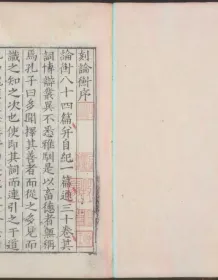 刻論衡序
論衡八十四篇并自紀一篇通三十卷其
詞博辯叢異不悉雅馴是以畜德者無稱
焉孔子曰多聞擇其善者而從之多見而
識之知之次也使即其詞而連引之于道